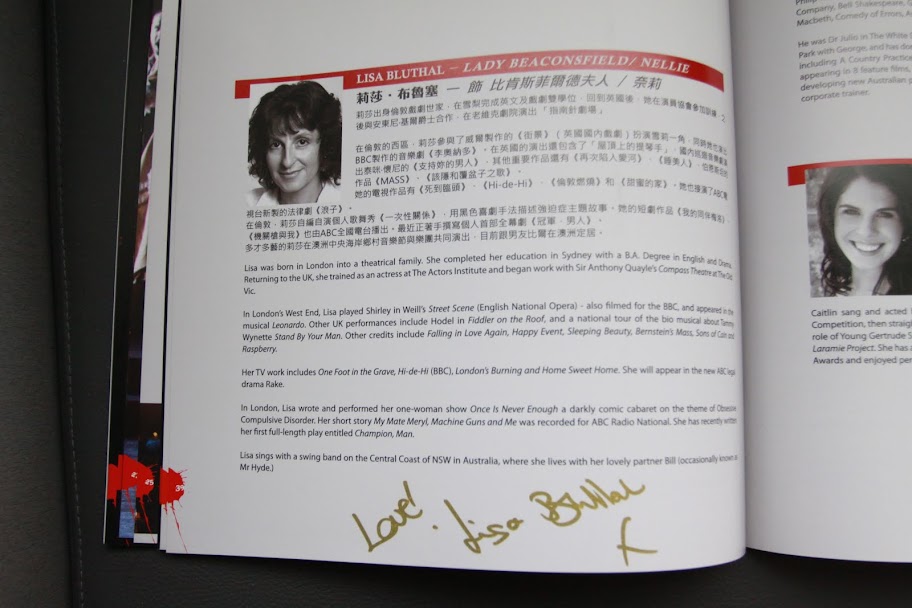 LISA BLUTHAL – LADY BEACONSFIELD/ NELLIE
莉莎·布魯塞 — 飾 比肯斯菲爾德夫人 / 奈莉
莉莎出身倫敦戲劇世家,在雪梨完成英文及戲劇雙學位,回到英國後,她在演員協會參加訓練,之
後與安東尼·基爾爵士合作,在老維克劇院演出「指南針劇場」
在倫敦的西區,莉莎參與了威爾製作的《街景》(英國國內戲劇)扮演雪莉一角,同時
BBC製作的音樂劇《李奧納多》。在英國的演出還包含了「屋頂上的提琴手」,國內巡迴
出泰咪·懷尼的《支持妳的男人》,其他重要作品還有《再次陷入愛河》、《睡美人》、
作品《MASS》、《該隱和覆盆子之歌》。
她的電視作品有《死到臨頭》、《Hi-de-Hi》、《倫敦燃燒》和 《甜蜜的家》。她也接演了ABC電
視台新製的法律劇《浪子》。
在倫敦,莉莎自編自演個人歌舞秀《一次性關係》,用黑色喜劇手法描述強迫症主題故事。她的短劇作品《我的同伴梅若》
《機關槍與我》也由ABC全國電台播出。最近正著手撰寫個人首部全幕劇《冠軍,男人》。
多才多藝的莉莎在澳洲中央海岸鄉村音樂節與樂團共同演出,目前跟男友比爾在澳洲定居。
Lisa was born in London into a theatrical family. She completed her education in Sydney with a B.A. Degree in English and Drama.
Returning to the UK, she trained as an actress at The Actors Institute and began work with Sir Anthony Quayle's Compass Theatre at The Old
Vic.
In London's West End, Lisa played Shirley in Weill's Street Scene (English National Opera) - also filmed for the BBC, and appeared in the
musical Leonardo. Other UK performances include Hodel in Fiddler on the Roof, and a national tour of the bio musical about Tammy
Wynette Stand By Your Man. Other credits include Falling in Love Again, Happy Event, Sleeping Beauty, Bernstein's Mass, Sons of Cain and
Raspberry.
Her TV work includes One Foot in the Grave, Hi-de-Hi (BBC), London's Burning and Home Sweet Home. She will appear in the new ABC legal
drama Rake.
In London, Lisa wrote and performed her one-woman show Once Is Never Enough a darkly comic cabaret on the theme of Obsessive
Compulsive Disorder. Her short story My Mate Meryl, Machine Guns and Me was recorded for ABC Radio National. She has recently written
her first full-length play entitled Champion, Man.
Lisa sings with a swing band on the Central Coast of NSW in Australia, where she lives with her lovely partner Bill (occasionally known as
Mr Hyde.)
Love! Lisa Bluthal
x
Company, Bell Shakespeare,
Macbeth, Comedy of Errors,
He was Dr Julio in The White
Park with George, and has
including A Country Practice
appearing in 8 feature films,
developing new Australian
corporate trainer.
Caitlin sang and acted
Competition, then
role of Young Gertrude
Laramie Project. She has
Awards and enjoyed